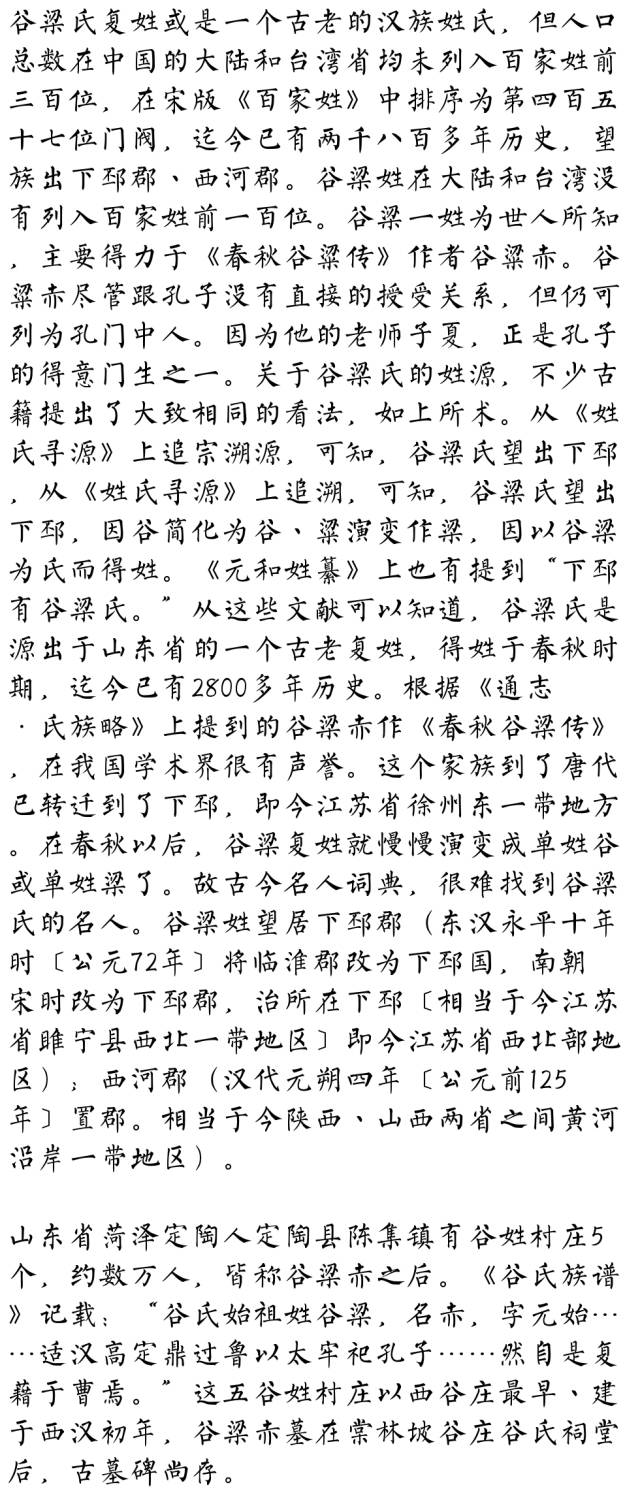 谷梁氏复姓或是一个古老的汉族姓氏，但人口
总数在中国的大陆和台湾省均未列入百家姓前
三百位，在宋版《百家姓》中排序为第四百五
十七位门阀，迄今已有两千八百多年历史，望
族出下邳郡、西河郡。谷梁姓在大陆和台湾没
有列入百家姓前一百位。谷梁一姓为世人所知
，主要得力于《春秋谷粱传》作者谷粱赤。谷
粱赤尽管跟孔子没有直接的授受关系，但仍可
列为孔门中人。因为他的老师子夏，正是孔子
的得意门生之一。关于谷梁氏的姓源，不少古
籍提出了大致相同的看法，如上所术。从《姓
氏寻源》上追宗溯源，可知，谷梁氏望出下邳
，从《姓氏寻源》上追溯，可知，谷梁氏望出
下邳，因谷简化为谷、粱演变作梁，因以谷梁
为氏而得姓。《元和姓纂》上也有提到“下邳
有谷梁氏。”从这些文献可以知道，谷梁氏是
源出于山东省的一个古老复姓，得姓于春秋时
期，迄今已有2800多年历史。根据《通志
·氏族略》上提到的谷梁赤作《春秋谷梁传》
，在我国学术界很有声誉。这个家族到了唐代
已转迁到了下邳，即今江苏省徐州东一带地方
。在春秋以后，谷梁复姓就慢慢演变成单姓谷
或单姓梁了。故古今名人词典，很难找到谷梁
氏的名人。谷梁姓望居下邳郡（东汉永平十年
时〔公元72年〕将临淮郡改为下邳国，南朝
宋时改为下邳郡，治所在下邳〔相当于今江苏
省睢宁县西北一带地区〕即今江苏省西北部地
区）；西河郡（汉代元朔四年〔公元前125
年〕置郡。相当于今陕西、山西两省之间黄河
沿岸一带地区）。
山东省菏泽定陶人定陶县陈集镇有谷姓村庄5
个，约数万人，皆称谷梁赤之后。《谷氏族谱
》记载：“谷氏始祖姓谷梁，名赤，字元始…
…适汉高定鼎过鲁以太牢祀孔子……然自是复
藉于曹焉。”这五谷姓村庄以西谷庄最早、建
于西汉初年，谷梁赤墓在棠林坡谷庄谷氏祠堂
后，古墓碑尚存。